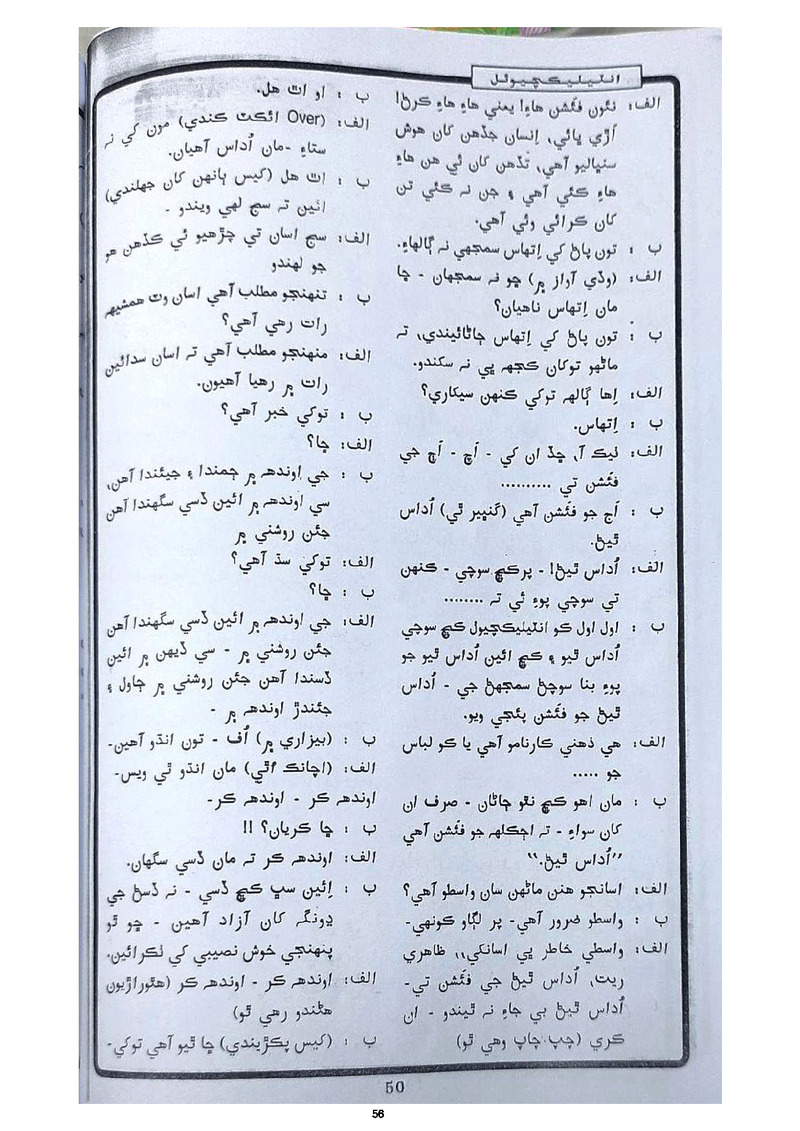 انٽيليڪچيوئل
الف: نئون فئشن هاءِ! يعني هاءِ هاءِ ڪرڻ!
اَڙي ڀائي، اِنسان جڏهن کان هوش
سنڀاليو آهي، تڏهن کان ئي هن هاءِ
هاءِ ڪئي آهي ۽ جن نه ڪئي تن
کان ڪرائي وئي آهي.
ب : تون پاڻ کي اِتهاس سمجهي نه ڳالهاءِ.
الف: (وڏي آواز ۾) ڇو نه سمجهان - ڇا
مان اِتهاس ناهيان؟
ب : تون پاڻ کي اِتهاس ڄاڻائيندي، ته
ماڻهو توکان ڪجهه ڀي نه سکندو.
الف: اِها ڳالهه توکي ڪنهن سيکاري؟
ب : اِتهاس.
الف: ٺيڪ آ، ڇڏ ان کي - اَڄ - اَڄ جي
فئشن تي ..........
ب : اَڄ جو فئشن آهي (گنڀير ٿي) اُداس
ٿيڻ.
الف: اُداس ٿيڻ! - پرڪڇ سوچي - ڪنهن
تي سوچي پوءِ ئي ته ........
ب : اول اول ڪو انٽيليڪچيول ڪڇ سوچي
اُداس ٿيو ۽ ڪڇ ائين اُداس ٿيو جو
پوءِ بنا سوچڻ سمجهڻ جي - اُداس
ٿيڻ جو فئشن پئجي ويو.
الف: هي ذهني ڪارنامو آهي يا ڪو لباس
جو .....
ب : مان اهو ڪڇ نٿو ڄاڻان - صرف ان
کان سواءِ - ته اڄڪلهه جو فئشن آهي
”اُداس ٿيڻ.“
الف: اسانجو هنن ماڻهن سان واسطو آهي؟
ب : واسطو ضرور آهي- پر لڳاو ڪونهي-
الف: واسطي خاطر ڀي اسانکي،، ظاهري
ريت، اُداس ٿيڻ جي فئشن تي-
اُداس ٿيڻ بي جاءِ نه ٿيندو - ان
ڪري (چپ چاپ وهي ٿو)
ب : او اٿ هل.
الف: (Over ائڪٽ ڪندي) مون کي نه
ستاءِ -مان اُداس آهيان.
ب : اٿ هل (کيس ٻانهن کان جهلندي)
ائين ته سج لهي ويندو -
الف: سج اسان تي چڙهيو ئي ڪڏهن هو
جو لهندو
ب : تنهنجو مطلب آهي اسان وٽ هميشهه
رات رهي آهي؟
الف: منهنجو مطلب آهي ته اسان سدائين
رات ۾ رهيا آهيون.
ب : توکي خبر آهي؟
الف: ڇا؟
ب : جي اونڌهه ۾ ڄمندا ۽ جيئندا آهن،
سي اونڌهه ۾ ائين ڏسي سگهندا آهن
جئن روشني ۾
الف: توکي سڌ آهي؟
ب : ڇا؟
الف: جي اونڌهه ۾ ائين ڏسي سگهندا آهن
جئن روشني ۾ - سي ڏيهن ۾ ائين
ڏسندا آهن جئن روشني ۾ ڄاول ۽
جئندڙ اونڌهه ۾ -
ب : (بيزاري ۾) اُف - تون انڌو آهين-
الف: (اچانڪ اُٿي) مان انڌو ٿي ويس-
اونڌهه ڪر - اونڌهه ڪر-
ب : ڇا ڪريان؟ !!
الف: اونڌهه ڪر ته مان ڏسي سگهان.
ب : اِئين سڀ ڪڇ ڏسي - نه ڏسڻ جي
ڍونگہ کان آزاد آهين - ڇو ٿو
پنهنجي خوش نصيبي کي ٺڪرائين.
الف: اونڌهه ڪر - اونڌهه ڪر (هٿوراڙيون
هڻندو رهي ٿو)
ب : (کيس پڪڙيندي) ڇا ٿيو آهي توکي-
50
56